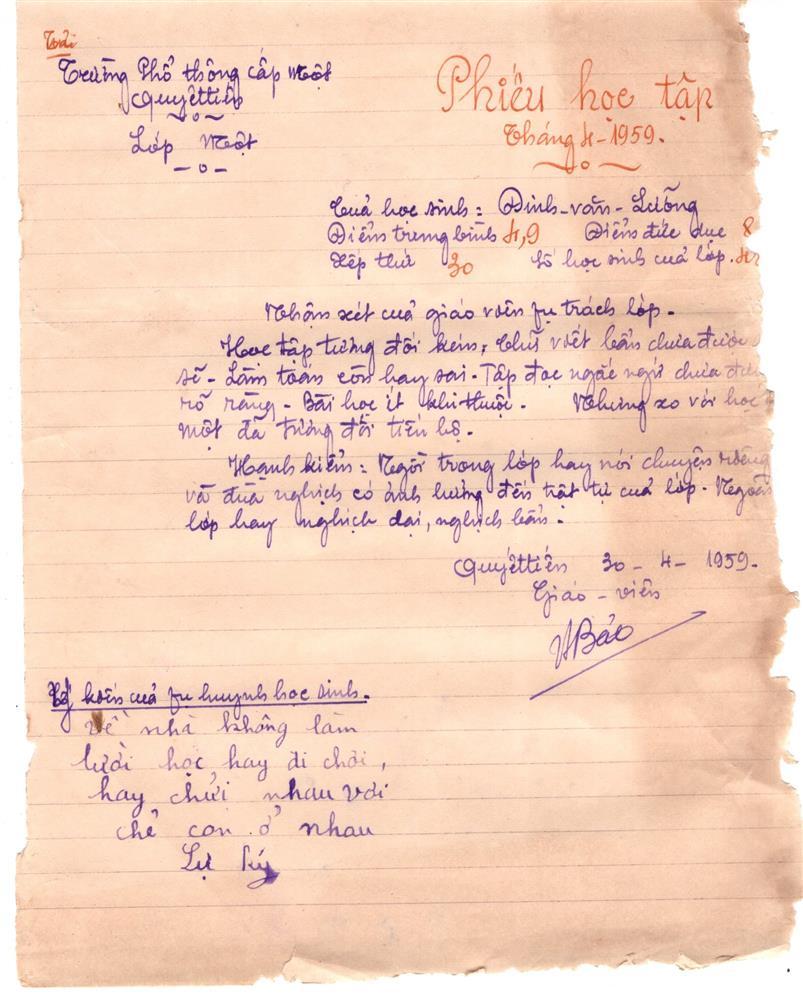 Trường Phổ thông cấp Một
Quyết tiến
Lớp Một
Phiếu học tập
Tháng 4-1959.
Của học sinh: Đinh-văn-Lưỡng
Điểm trung bình 4,9 Điểm đức dục 8
Xếp thứ 30 Số học sinh của lớp.
Nhận xét của giáo viên fụ trách lớp.
Học tập tương đối kém, chữ viết bẩn chưa được
sẽ - Làm toán còn hay sai - Tập đọc ngắc ngứ chưa
rõ ràng - Bài học ít khi thuộc. Nhưng so với học
một đã tương đối tiến bộ.
Hạnh kiểm: Ngồi trong lớp hay nói chuyện riêng
và đùa nghịch có ảnh hưởng đến trật tự của lớp - Ngoài
lớp hay nghịch dại, nghịch bẩn.
Quyết tiến 30 - 4 - 1959.
Giáo - viên
VBảo
Ý kiến của fụ huynh học sinh.
về nhà không làm
lười học hay đi chơi,
hay chửi nhau với
chẻ con ở nhau
Lự ký